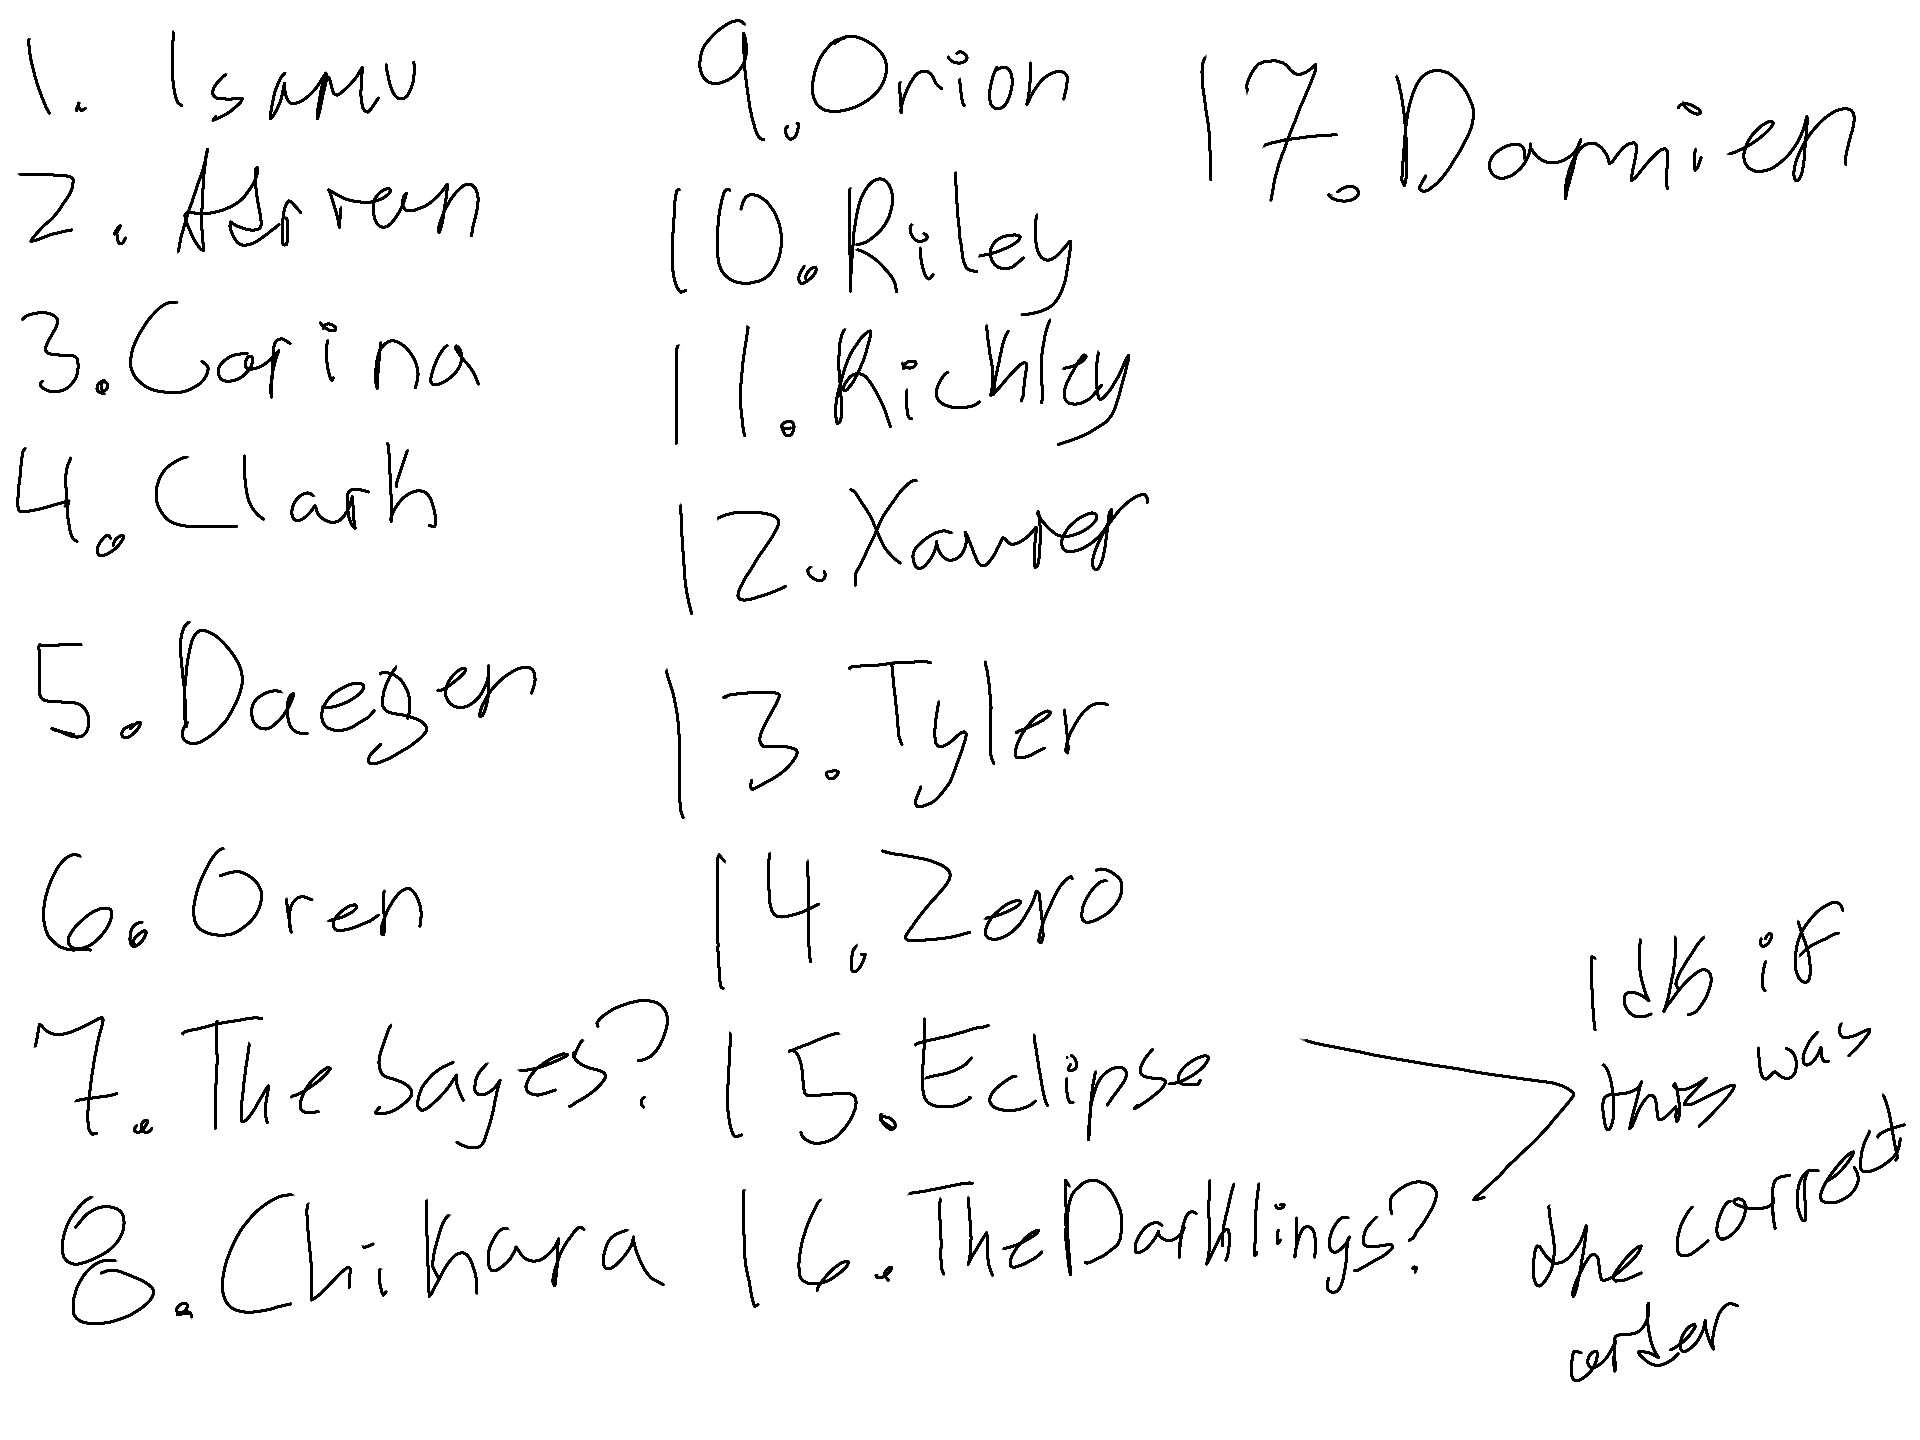 1. Isamu
2. Adrian
3. Corina
4. Clark
5. Daeger
6. Oren
7. The Sages?
8. Chikara
9. Orion
10. Riley
11. Richley
12. Xavier
13. Tyler
14. Zero
15. Eclipse
16. The Darklings?
17. Damien
Idk if
this was
the correct
order